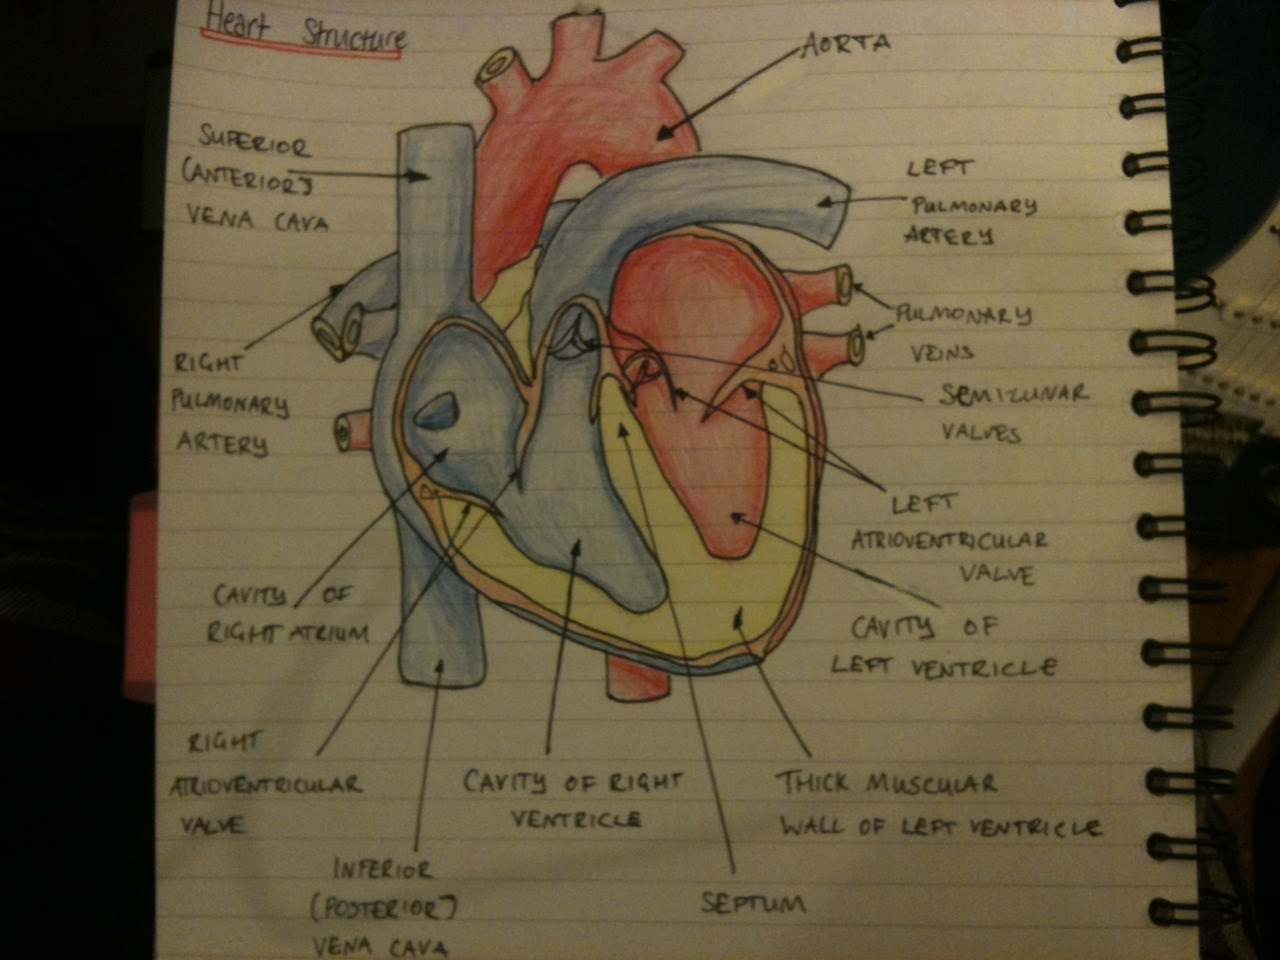 Heart Structure
AORTA
SUPERIOR
(ANTERIOR)
VENA CAVA
LEFT
PULMONARY
ARTERY
RIGHT
PULMONARY
ARTERY
PULMONARY
VEINS
SEMILUNAR
VALVES
LEFT
ATRIOVENTRICULAR
VALVE
CAVITY OF
RIGHT ATRIUM
CAVITY OF
LEFT VENTRICLE
RIGHT
ATRIOVENTRICULAR
VALVE
CAVITY OF RIGHT
VENTRICLE
THICK MUSCULAR
WALL OF LEFT VENTRICLE
INFERIOR
(POSTERIOR)
VENA CAVA
SEPTUM